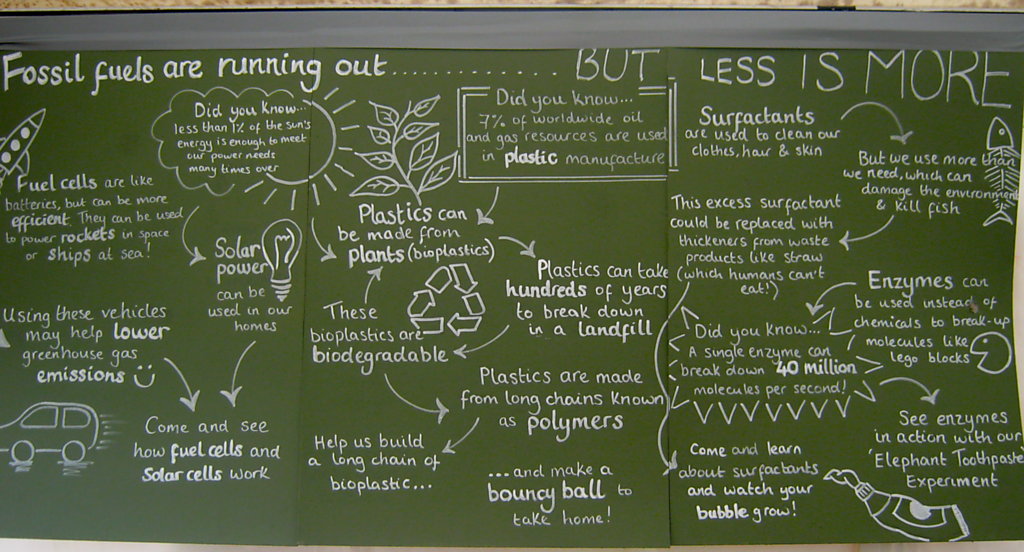 Fossil fuels are running out.............. BUT LESS IS MORE
Did you know...
less than 1% of the sun's
energy is enough to meet
our power needs
many times over
Fuel cells are like
batteries, but can be more
efficient. They can be used
to power rockets in space
or ships at sea!
Solar
power
can be
used in our
homes
Using these vehicles
may help lower
greenhouse gas
emissions
Come and see
how fuel cells and
Solar cells work
Did you know...
7% of worldwide oil
and gas resources are used
in plastic manufacture
Plastics can
be made from
plants (bioplastics)
Plastics can take
hundreds of years
to break down
in a landfill
These
bioplastics are
biodegradable
Plastics are made
from long chains known
as polymers
Help us build
a long chain of
bioplastic...
...and make a
bouncy ball to
take home!
Surfactants
are used to clean our
clothes, hair & skin
But we use more than
we need, which can
damage the environment
& kill fish
This excess surfactant
could be replaced with
thickeners from waste
products like straw
(which humans can't
eat!)
Enzymes can
be used instead of
chemicals to break-up
molecules like
lego blocks
Did you know...
A single enzyme can
break down 40 million
molecules per second!
See enzymes
in action with our
'Elephant Toothpaste
Experiment
Come and learn
about surfactants
and watch your
bubble grow!